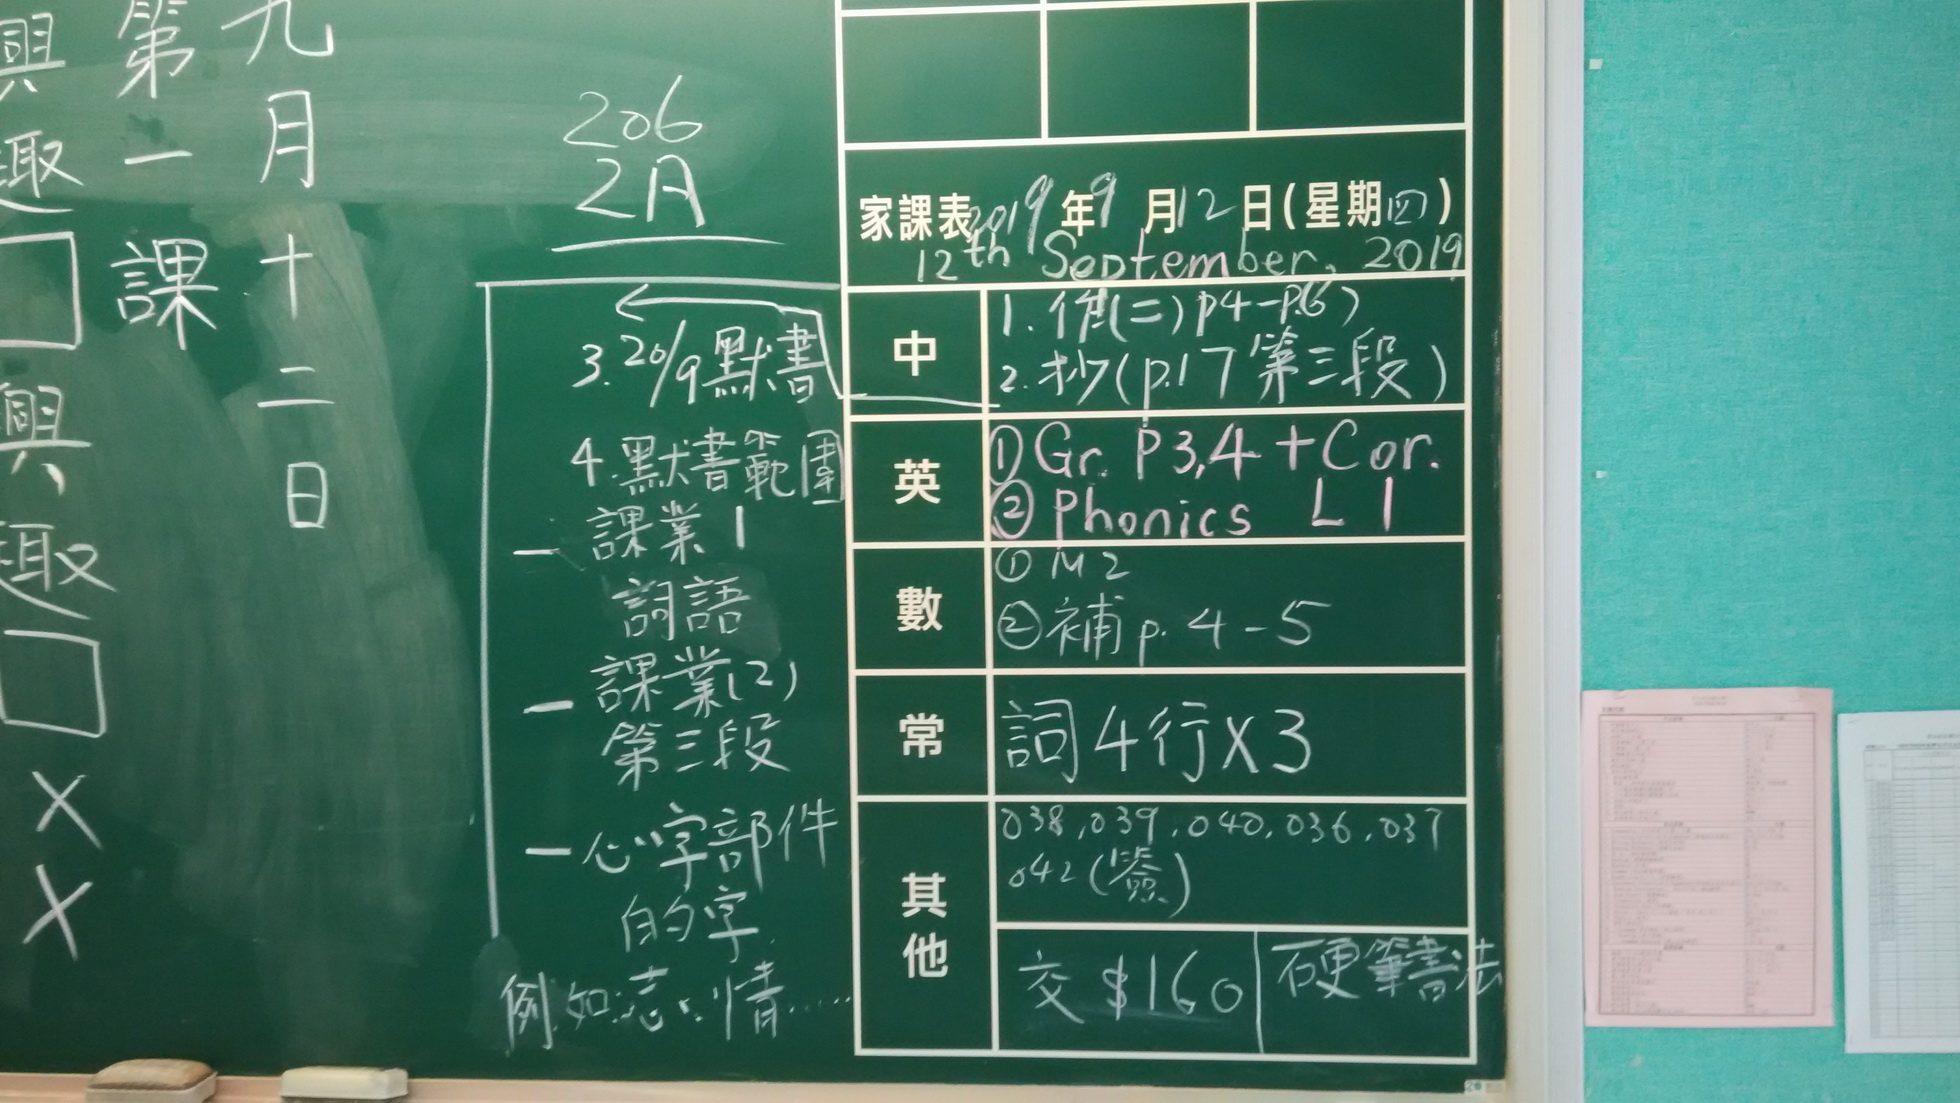 九月十二日
第一課
興趣□興趣□XX
206
2A
家課表2019年9月12日(星期四)
12th September, 2019
中
1. 作(二)p4-p.6)
2. 抄(p.17第三段)
3. 20/9默書
4. 默書範圍
- 課業1
詞語
- 課業(2)
第三段
- 心字部件
的字
例如:志、情......
英
① Gr. P3,4 + Cor.
② Phonics L1
數
① M2
② 補p. 4-5
常
詞4行X3
其他
038, 039, 040, 036, 037
042(簽)
交$160
硬筆書法